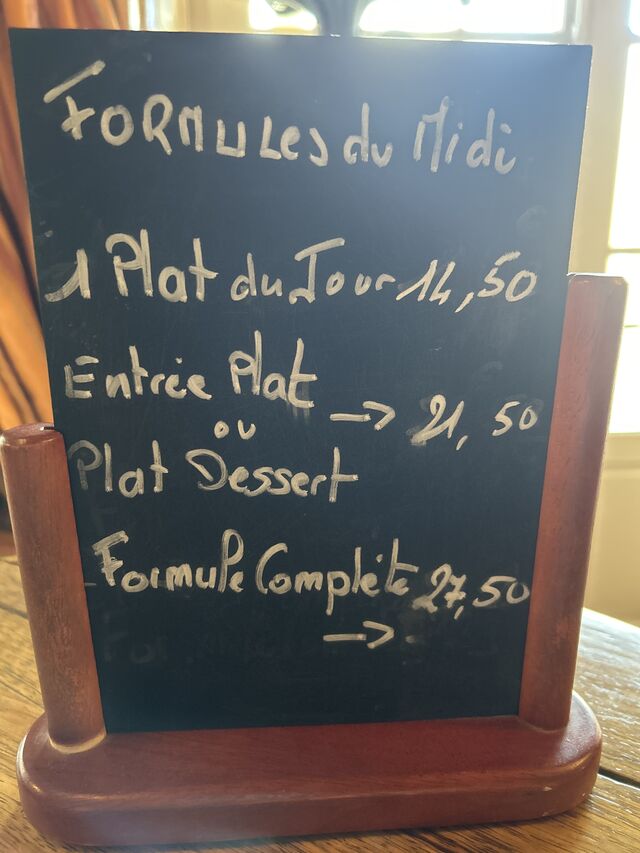 FORMULES du Midi
1 Plat du Jour 14,50
Entrée Plat
ou → 21,50
Plat Dessert
Formule Complète 27,50
→